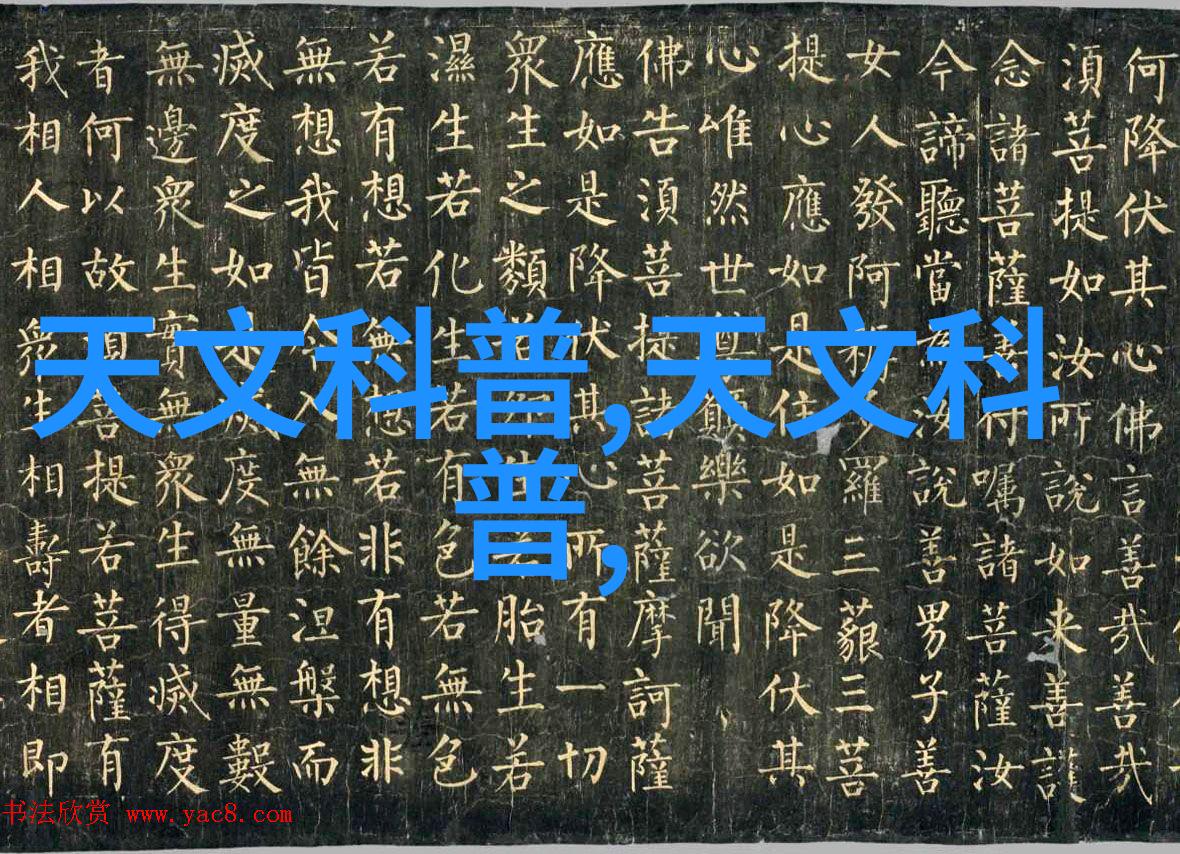 何降伏其心佛言善哉善哉
湏菩提如汝所說如来善護
念諸菩薩善付嘱諸菩薩汝
今諦聽當為汝說善男子善
女人發阿耨多羅三藐三菩
提心應如是住如是降伏其
心唯然世尊願樂欲聞
佛告湏菩提諸菩薩摩訶薩
應如是降伏其心所有一切
衆生之類若卵生若胎生若
濕生若化生若有色若無色
若有想若無想若非有想非
無想我皆令入無餘涅槃而
滅度之如是滅度無量無數
無邊衆生實無衆生得滅度
者何以故湏菩提若菩薩有
我相人相衆生相壽者相即
天文科普,天文科
普,
书法欣赏 www.yac8.com